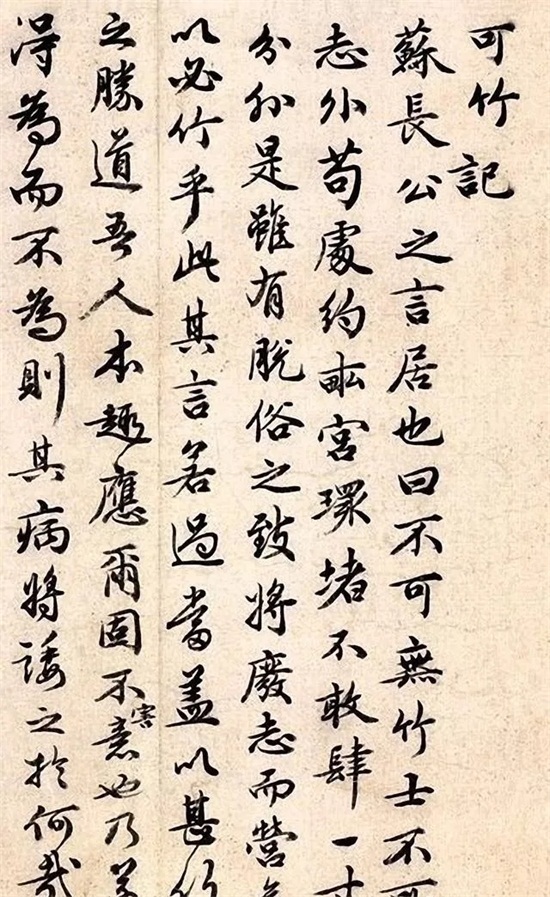 可竹記
蘇長公之言居也曰不可無竹士不可
志外苟處約畝宮環堵不敢肆一寸
分外是雖有脫俗之致將廢志而營
以必竹乎此其言若過當盖以甚竹
之勝道吾人本趣應爾固不害意也乃
得為而不為則其病將諉之於何哉